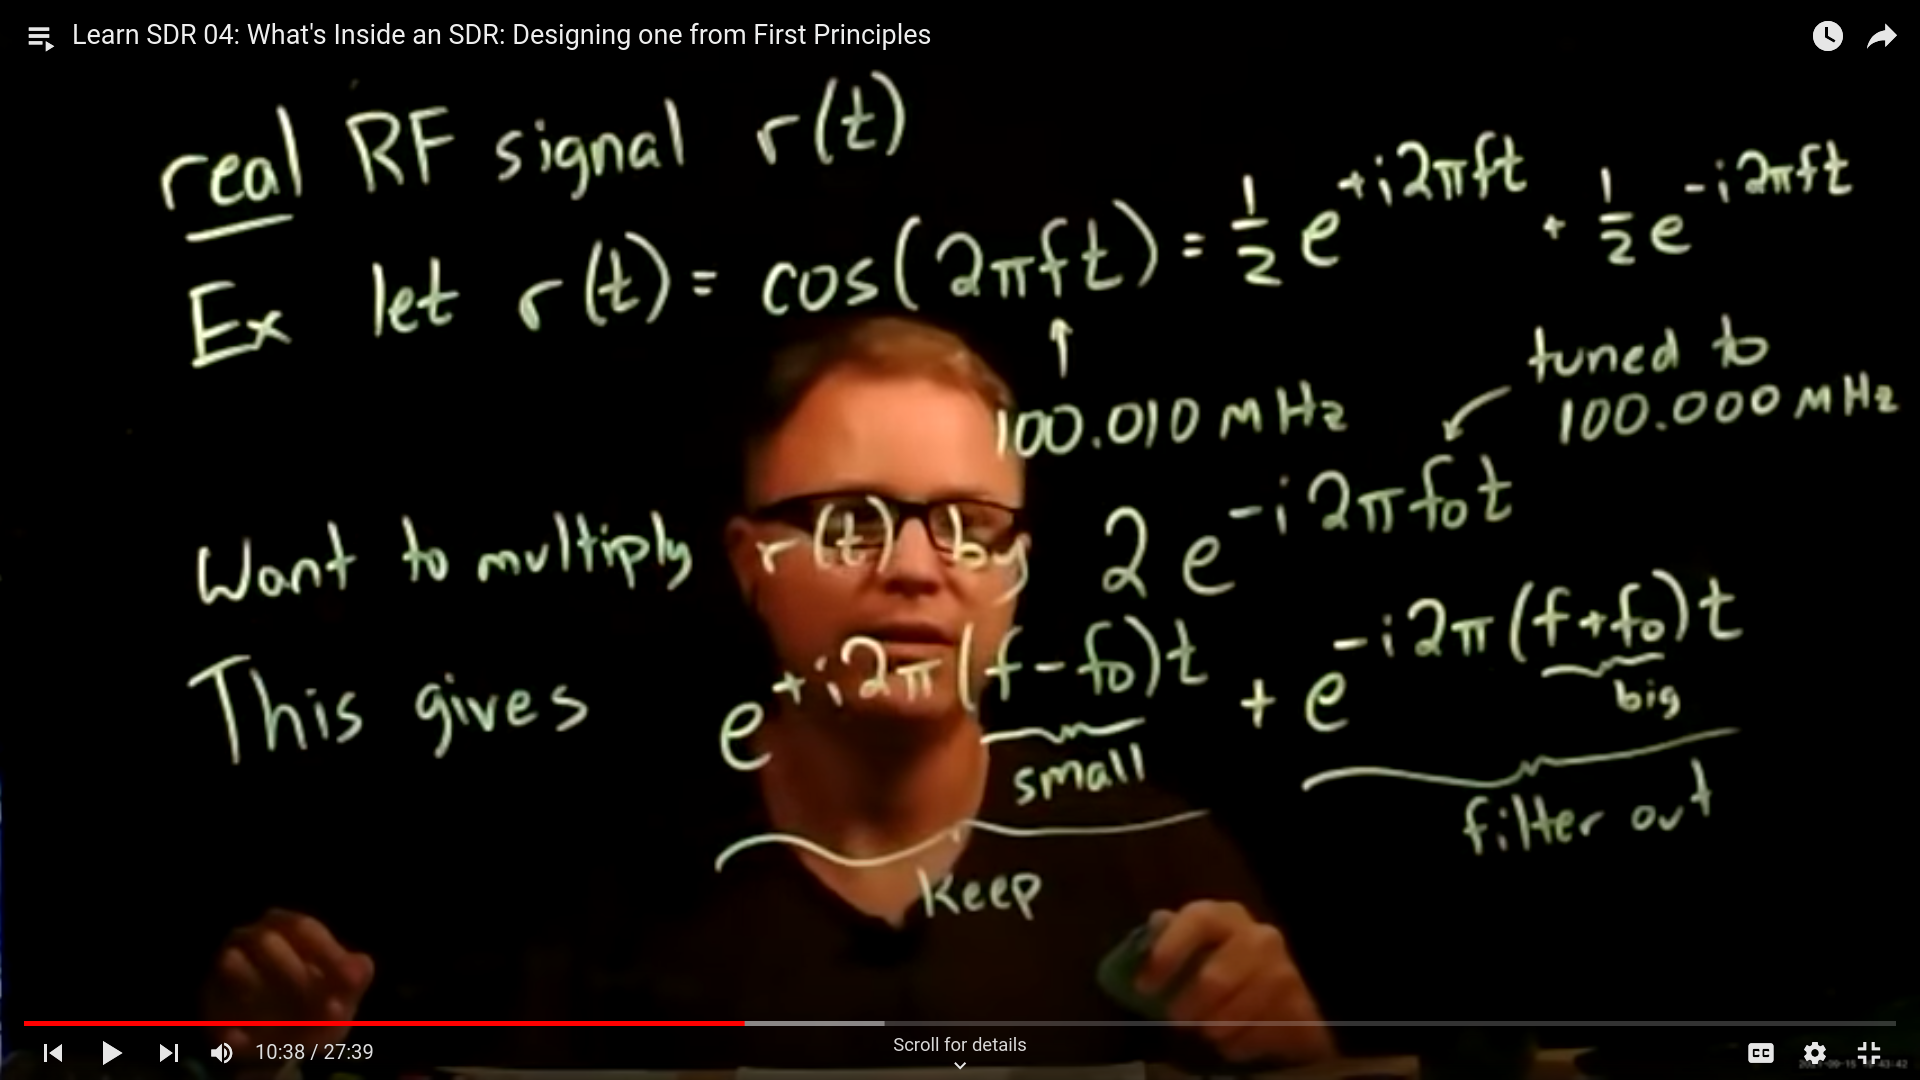 Learn SDR 04: What's Inside an SDR: Designing one from First Principles
real RF signal r(t)
Ex let r(t) = cos(2πft) = 1/2 e^{+i2πft} + 1/2 e^{-i2πft}
100.010 MHz
tuned to
100.000 MHz
Want to multiply r(t) by 2 e^{-i2πf₀t}
This gives e^{+i2π(f-f₀)t} + e^{-i2π(f+f₀)t}
small
big
keep
filter out
10:38 / 27:39
Scroll for details
CC